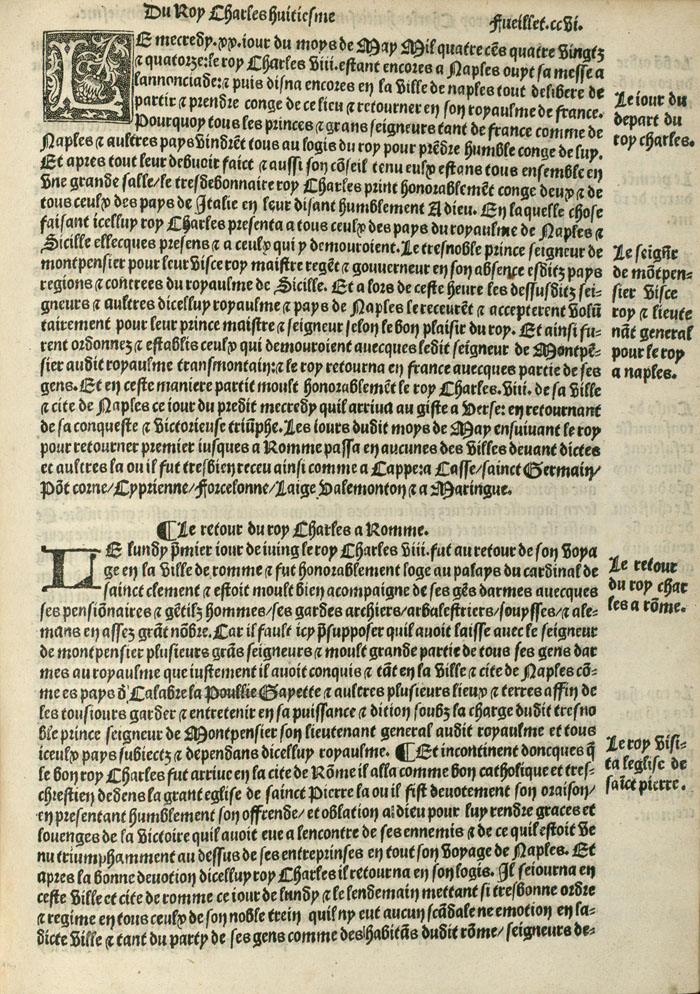 Du Roy Charles huitiesme
Fueillet.ccvi.
LE mecredy.xx.iour du moys de May Mil quatre cẽs quatre vingtz
⁊ quatorze:le roy Charles viii.estant encores a Naples ouyt sa messe a
lannonciade:⁊ puis disna encores en la ville de naples tout delibere de
partir ⁊ prendre conge de ce lieu ⁊ retourner en son royaulme de france.
Pourquoy tous les princes ⁊ grans seigneurs tant de france comme de
Naples ⁊ aultres pays vindrẽt tous au logis du roy pour prẽdre humble conge de luy.
Et apres tout leur debuoir faict ⁊ aussi son cõseil tenu eulx estans tous ensemble en
vne grande salle/le tresdebonnaire roy Charles print honorablemẽt conge deux ⁊ de
tous ceulx des pays de Italie en leur disant humblement Adieu. En laquelle chose
faisant icelluy roy Charles presenta a tous ceulx des pays du royaulme de Naples ⁊
Sicille ellecques presens ⁊ a ceulx qui y demouroient.Le tresnoble prince seigneur de
montpensier pour leur visce roy maistre regẽt ⁊ gouuerneur en son absence esditz pays
regions ⁊ contrees du royaulme de Sicille. Et a lors de ceste heure les dessusditz sei-
gneurs ⁊ aultres dicelluy royaulme ⁊ pays de Naples le receurẽt ⁊ accepterent volũ
tairement pour leur prince maistre ⁊ seigneur selon le bon plaisir du roy. Et ainsi fu-
rent ordonnez ⁊ establis ceulx qui demouroient auecques ledit seigneur de Montpẽ-
sier audit royaulme transmontain:⁊ le roy retourna en france auecques partie de ses
gens. Et en ceste maniere partit moult honorablemẽt le roy Charles.viii. de sa ville
⁊ cite de Naples ce iour du predit mecredy quil arriua au giste a Verse: en retournant
de sa conqueste ⁊ victorieuse triũphe. Les iours dudit moys de May ensuiuant le roy
pour retourner premier iusques a Romme passa en aucunes des villes deuant dictes
et aultres la ou il fut tresbien receu ainsi comme a Cappe:a Casse/sainct Germain/
Põt corne/Cyprienne/Forcelonne/Laige valemonton ⁊ a Maringue.
¶Le retour du roy Charles a Romme.
LE lundy p̃mier iour de iuing le roy Charles viii.fut au retour de son voya
ge en la ville de romme ⁊ fut honorablement loge au palays du cardinal de
sainct clement ⁊ estoit moult bien acompaigne de ses gẽs darmes auecques
ses pensiõnaires ⁊ gẽtilz hommes/ses gardes archiers/arbalestriers/souysses/⁊ ale-
mans en assez grãt nõbre. Car il fault icy p̃supposer quil auoit laisse auec le seigneur
de montpensier plusieurs grãs seigneurs ⁊ moult grande partie de tous ses gens dar
mes au royaulme que iustement il auoit conquis ⁊ tãt en la ville ⁊ cite de Naples cõ-
me es pays d' Calabre la Poullie Gayette ⁊ aultres plusieurs lieux ⁊ terres affin de
les tousiours garder ⁊ entretenir en sa puissance ⁊ dition soubz la charge dudit tresno
ble prince seigneur de Montpensier son lieutenant general audit royaulme et tous
iceulx pays subiectz ⁊ dependans dicelluy royaulme. ¶Et incontinent doncques q̃
le bon roy Charles fut arriue en la cite de Rõme il alla comme bon catholique et tres-
chrestien dedens la grant eglise de sainct Pierre la ou il fist deuotement son oraison/
en presentant humblement son offrende/et oblation a dieu pour luy rendre graces et
louenges de la victoire quil auoit eue a lencontre de ses ennemis ⁊ de ce quil estoit ve
nu triumphamment au dessus de ses entreprinses en tout son voyage de Naples. Et
apres la bonne deuotion dicelluy roy Charles il retourna en son logis. Il seiourna en
ceste ville et cite de romme ce iour de lundy ⁊ le lendemain mettant si tresbonne ordre
⁊ regime en tous ceulx de son noble trein quil ny eut aucun scãdale ne emotion en la-
dicte ville ⁊ tant du party de ses gens comme des habitãs dudit rõme/seigneurs de-
Le iour du
depart du
roy charles.
Le seignr̃
de mõtpen-
sier visce
roy ⁊ lieute
nãt general
pour le roy
a naples.
Le retour
du roy char
les a rõme.
Le roy visi-
ta leglise de
saĩct pierre.